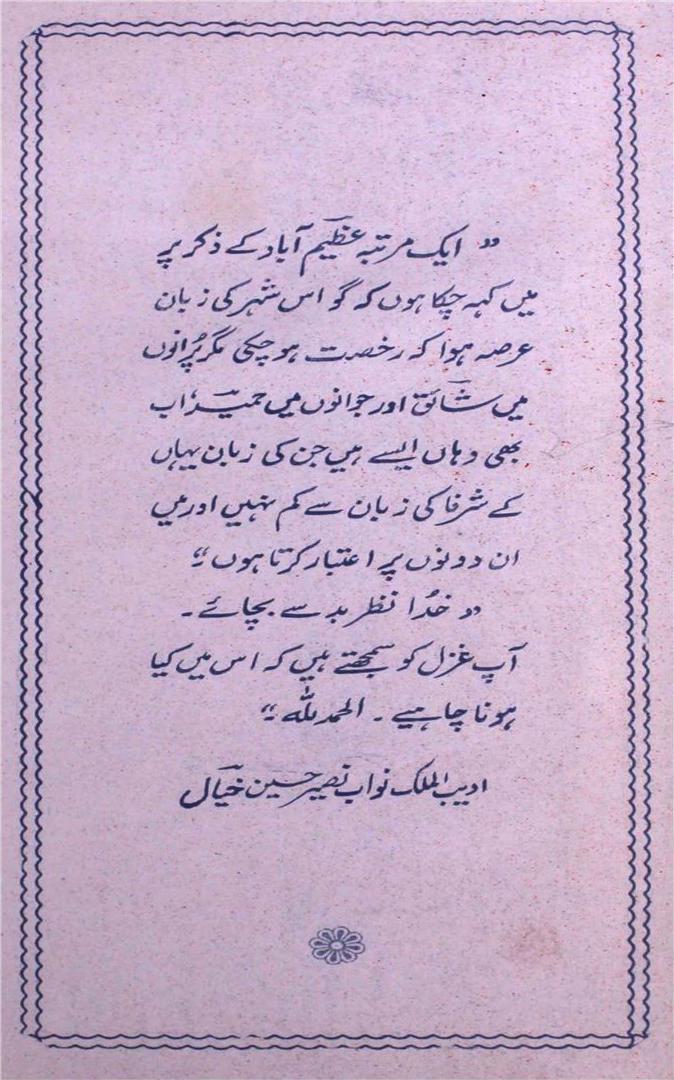 ” ایک مرتبہ عظیم آباد کے ذکر پر
میں کہہ چکا ہوں کہ گو اس شہر کی زبان
عرصہ ہوا کہ رخصت ہو چکی مگر پُرانوں
میں شائقؔ اور جوانوں میں حمیدؔ اب
بھی وہاں ایسے ہیں جن کی زبان یہاں
کے شرفا کی زبان سے کم نہیں اور میں
ان دونوں پر اعتبار کرتا ہوں “
” خدُا نظر بد سے بچائے ۔
آپ غزل کو سمجھتے ہیں کہ اس میں کیا
ہونا چاہیے ۔ الحمد للہ “
ادیب الملک نواب نصیر حسین خیالؔ